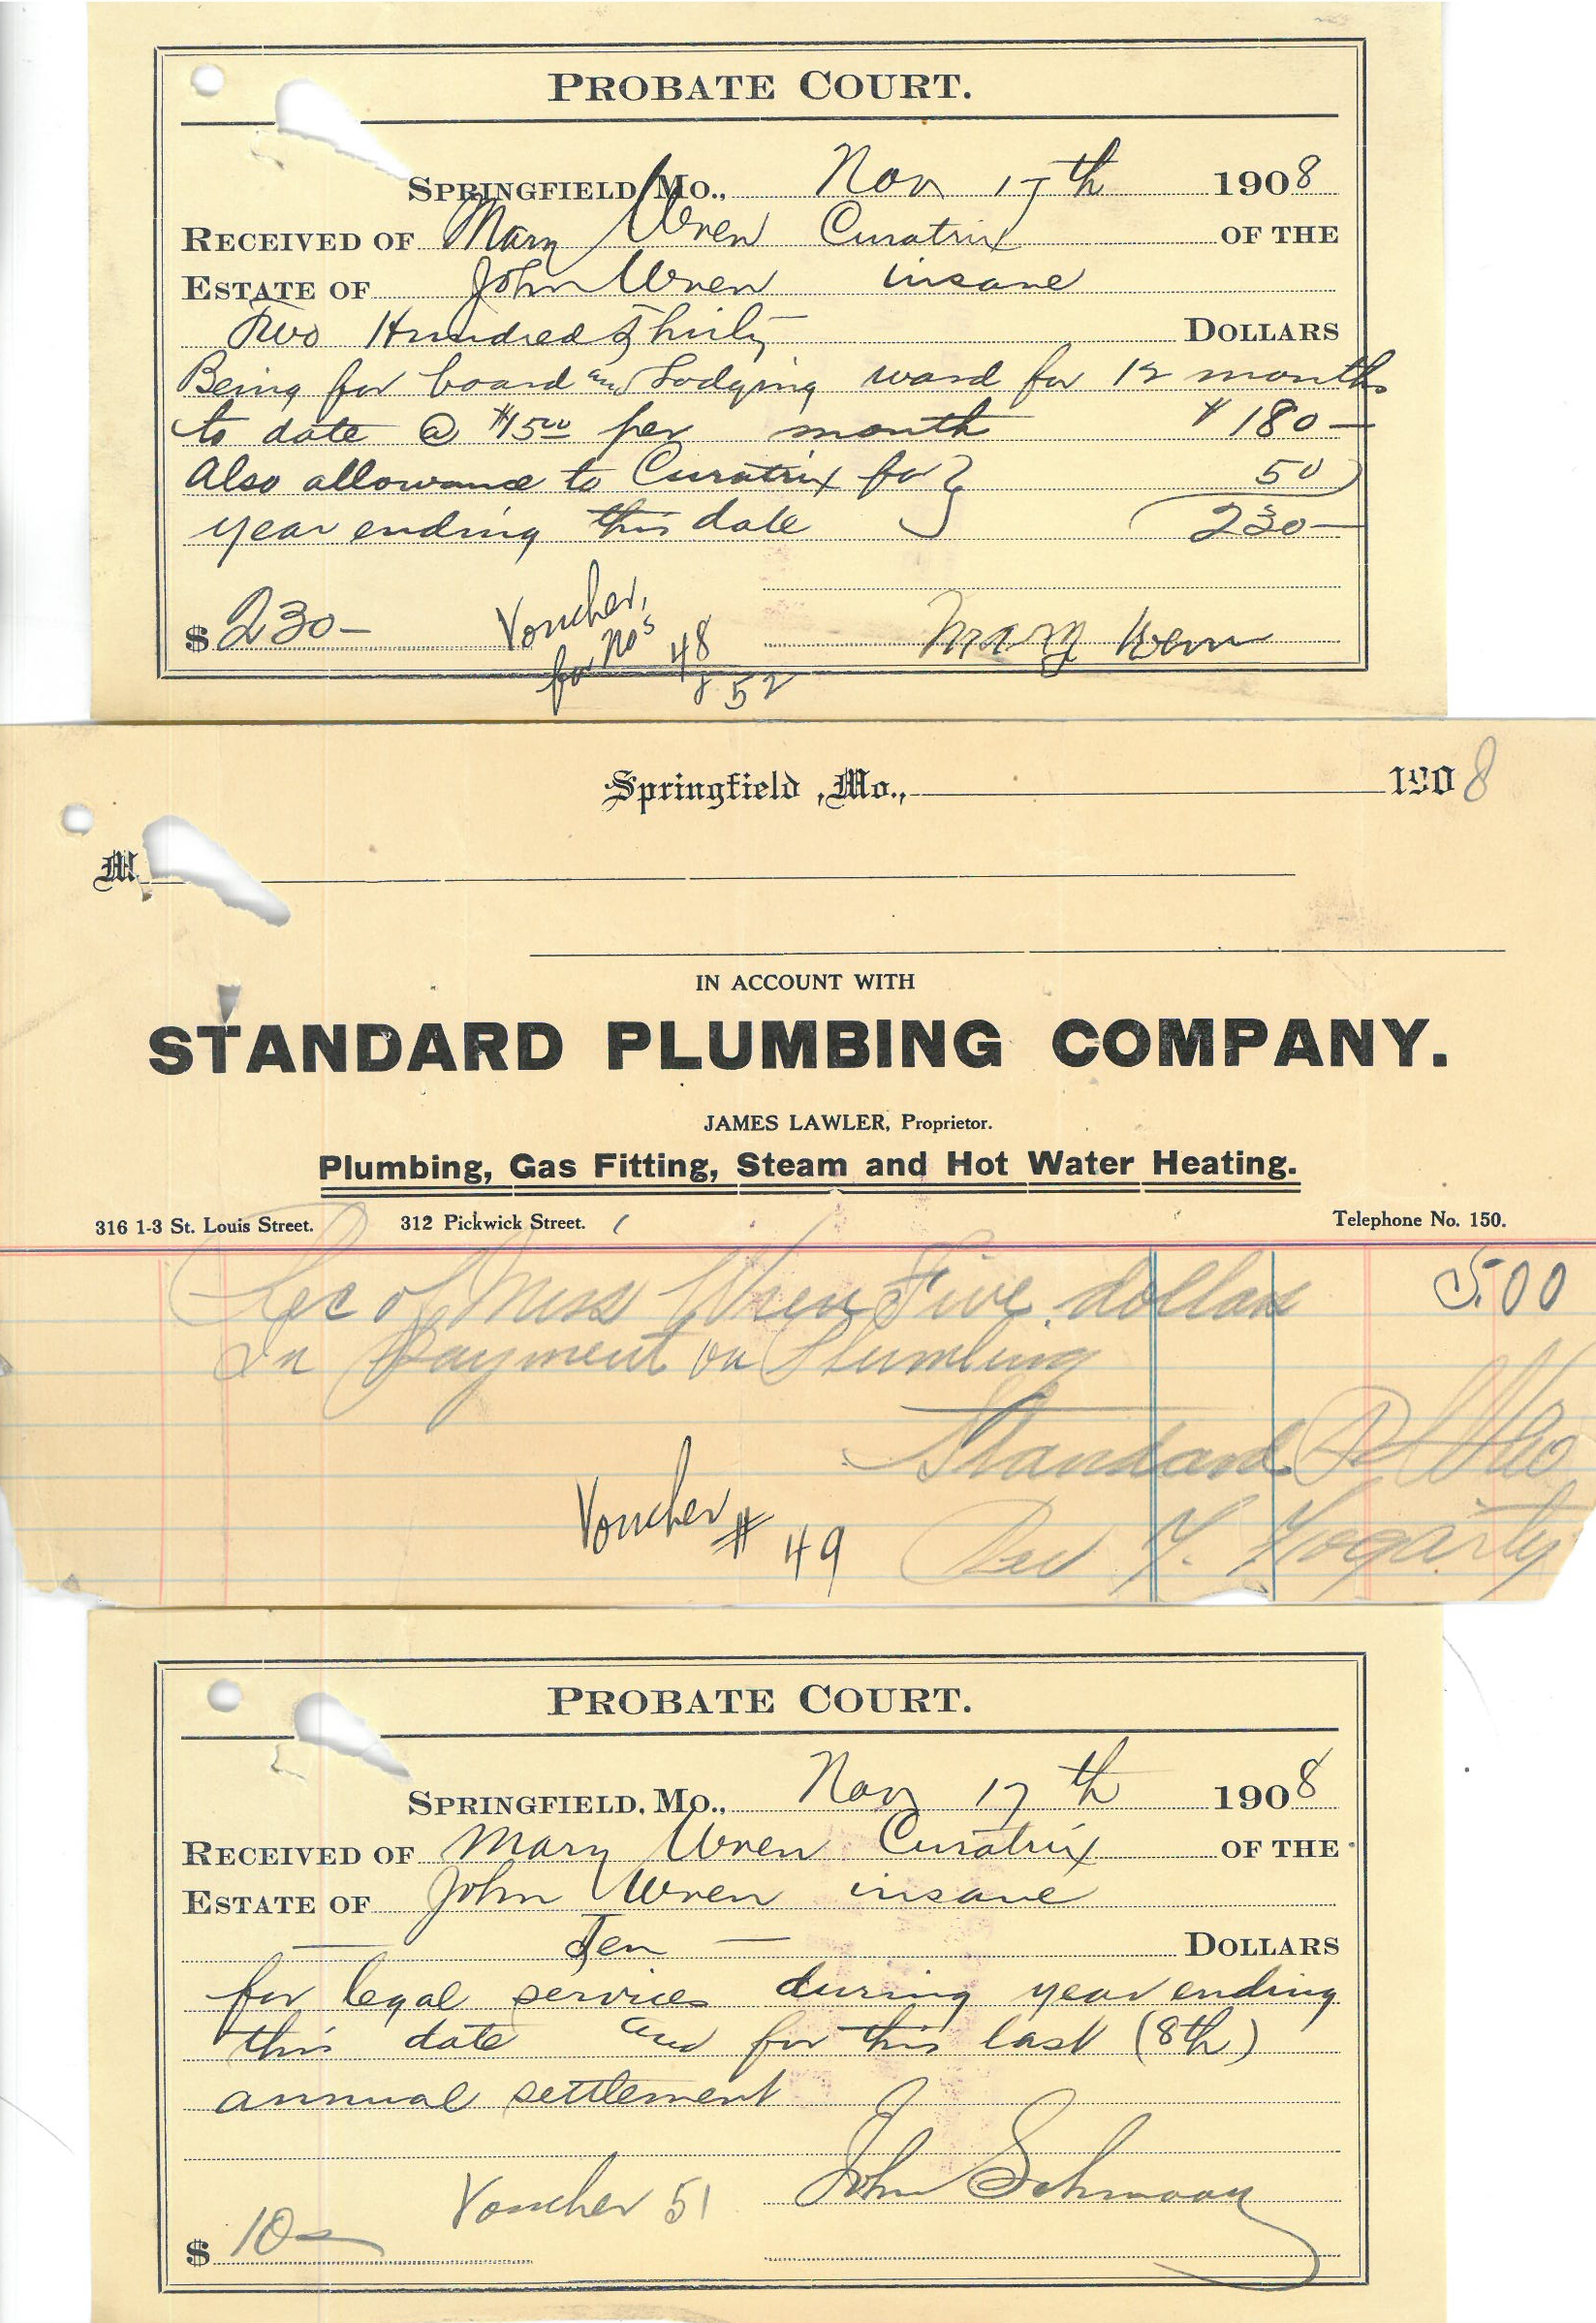 PROBATE COURT.
SPRINGFIELD, MO., Nov 17th 1908
RECEIVED OF Mary Wren Curatrix OF THE
ESTATE OF John Wren insane
Two Hundred Thirty DOLLARS
Being for board and Lodging ward for 12 months
to date @ $15 00 per month $180—
Also allowance to Curatrix for } 50
year ending this date 230—
$ 230— Voucher, for Nos 48 & 52
Mary Wren
Springfield, Mo., 1908
M
IN ACCOUNT WITH
STANDARD PLUMBING COMPANY.
JAMES LAWLER, Proprietor.
Plumbing, Gas Fitting, Steam and Hot Water Heating.
316 1-3 St. Louis Street. 312 Pickwick Street. Telephone No. 150.
Rec of Miss Wren Five dollars 5.00
In Payment on Plumbing
Standard
Voucher # 49
Fogarty
PROBATE COURT.
SPRINGFIELD, MO., Nov 17th 1908
RECEIVED OF Mary Wren Curatrix OF THE
ESTATE OF John Wren insane
— Ten — DOLLARS
for legal services during year ending
this date and for this last (8th)
annual settlement
John Schmook
Voucher 51
$ 10